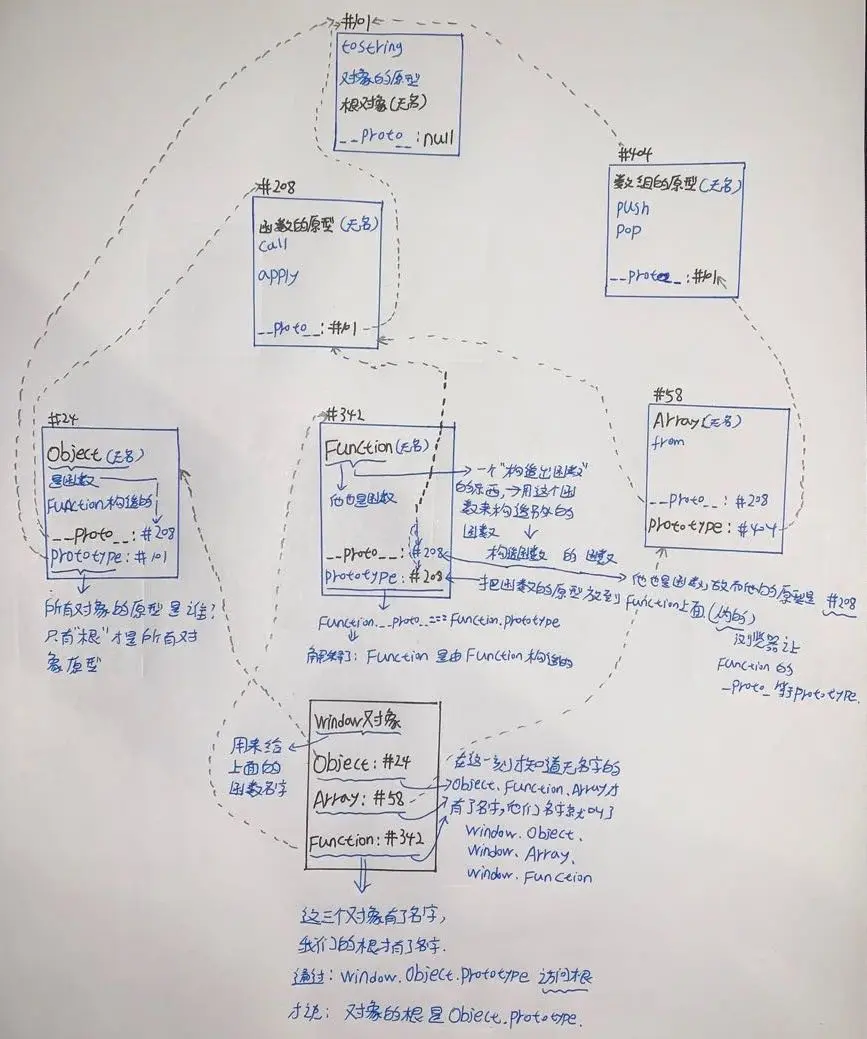 #101
toString
对象的原型
根对象(无名)
__proto__:null
#404
数组的原型(无名)
push
pop
__proto__:#101
#208
函数的原型(无名)
call
apply
__proto__:#101
#524
Object(无名)
是函数
Function构造的
__proto__:#208
prototype:#101
所有对象的原型是谁?
只有"根"才是所有对
象原型
#342
Function(无名)
他也是函数
__proto__:#208
prototype:#208
Function.__proto__===Function.prototype
Function 是由 Function 构造的
一个"构造出函数"
的东西,→用这个函
数来构造另外的
函数
构造函数 的 函数
他也是函数,故而他的原型是 #208
把函数的原型放到 Function上面(伪的)
浏览器让
Function 的
_proto_ 等于prototype.
#58
Array(无名)
from
__proto__:#208
prototype:#404
window对象
Object:#24
Array:#58
Function:#342
用来给
上面的
函数名字
在这一刻才知道无名字的
Object.Function.Array才
有了名字,他们名字就叫了
window.Object.
window.Array.
window.Function
这三个对象有了名字,
我们的根才有了名字.
通过:window.Object.prototype 访问根
才说:对象的根是Object.prototype.